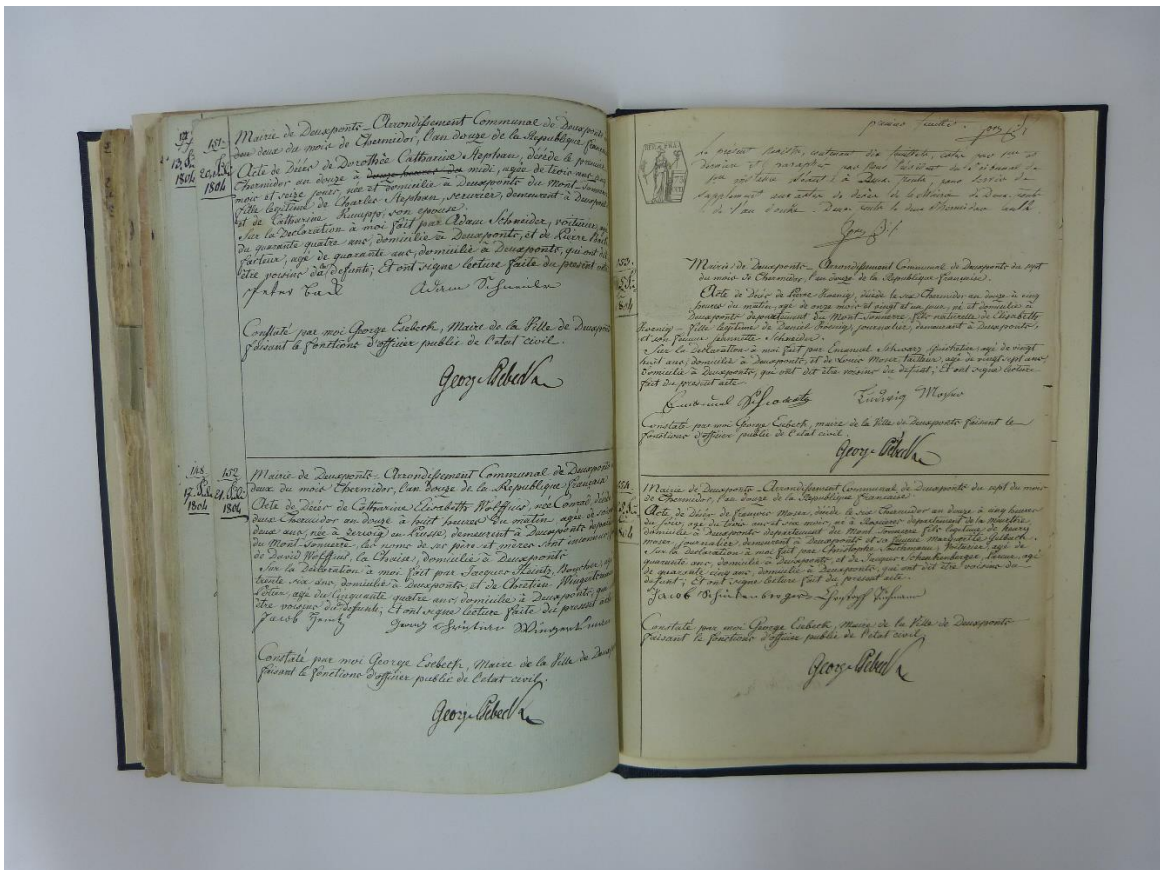 151.
20. Juli
1804
Mairie de Deuxponts - Arrondissement Communal de Deuxponts
du deux du mois de Thermidor, l'an douze de la Republique française
Acte de Décés de Dorothée Catharine Stephan, décédé le premier
Thermidor an douze à midi, agée de trois ans
mois et seize jours, née et domicilié à Deuxponts du Mont-Tonnerre
fille legitime de Charles Stephan, serrurier, demeurant à Deuxponts
et de Catharine son epouse.
Sur la Declaration à moi fait par Adam Schneider, voiturier, agé
du quarante quatre ans, domicilié à Deuxponts, et de Pierre
facteur, agé de quarante ans, domicilié à Deuxponts, qui ont dit
être voisins du defunt; Et ont signé lecture faite du present acte
Peter Adam Schneider
Constaté par moi George Esebeck, Maire de la Ville de Deuxponts
faisant le fonctions d'officier public de l'etat civil.
George Esebeck
148. 152.
21. Juli
1804 1804
Mairie de Deuxponts - Arrondissement Communal de Deuxponts
deux du mois Thermidor, l'an douze de la Republique française
Acte de Décés de Catharine Elisabeth Wolffius, née Conrad, décédé
deux Thermidor an douze à huit heures du matin, agée de
deux ans, née à en Prusse, demeurant à Deuxponts
du Mont-Tonnerre, les noms de ses père et mère sont inconnus,
de David Wolffius, domicilié à Deuxponts
Sur la Declaration à moi fait par Jacques Heintz, Boucher, agé
trente six ans, domicilié à Deuxponts et de Chretien
Potier, agé du Cinquante quatre ans, domicilié à Deuxponts, qui
être voisins du defunt; Et ont signé lecture faite du présent acte
Jacob Heintz
Constaté par moi George Esebeck, Maire de la Ville de Deuxponts
faisant le fonctions d'officier public de l'etat civil.
George Esebeck
premier feuillet.
Le present contenant dix feuillets,
et paraphé par Nous President du Tribunal de
Deux Ponts, pour servir de
supplement aux actes de décés de la Mairie de Deux Ponts
de l'an Deux ponts le deux Thermidor
153.
1804
Mairie de Deuxponts - Arrondissement Communal de Deuxponts du sept
du mois de Thermidor, l'an douze de la Republique française.
Acte de Décés de Pierre Koenig, décédé le six Thermidor an douze à cinq
heures du matin, agé de onze mois et vingt et un jour, né et domicilié à
Deuxponts departement du Mont-Tonnerre, fils naturelle de Elisabeth
Koenig - fille legitime de Daniel Koenig, journalier, demeurant à Deuxponts,
et son femme Jeannette Schneider.
Sur la Declaration à moi fait par Emanuel Schwarz, agé de vingt
huit ans, domicilié à Deuxponts, et de Louis Moser, tailleur, agé de vingt sept ans
domicilié à Deuxponts, qui ont dit être voisins du defunt; Et ont signé lecture
fait du present acte.
Emanuel Ludwig
Constaté par moi George Esebeck, maire de la Ville de Deuxponts faisant le
fonctions d'officier public de l'etat civil.
George Esebeck
154.
1804
Mairie de Deuxponts - Arrondissement Communal de Deuxponts du sept du mois
de Thermidor, l'an douze de la Republique française.
Acte de Décés de françois Moser, décédé le six Thermidor an douze à cinq heures
du soir, agé du trois ans et six mois, né à departement de la
domicilié à Deuxponts departement du Mont Tonnerre fils legitime de
moser, journalier, demeurant à Deuxponts et sa femme Marguerite
Sur la Declaration à moi fait par Christophe Voiturier, agé de
quarante ans, domicilié à Deuxponts, et de Jacques agé
de quarante cinq ans, domicilié à Deuxponts, qui ont dit être voisins du
defunt, Et ont signé lecture fait du present acte.
Jacob
Constaté par moi George Esebeck, Maire de la Ville de Deuxponts
faisant le fonctions d'officier public de l'etat civil
George Esebeck